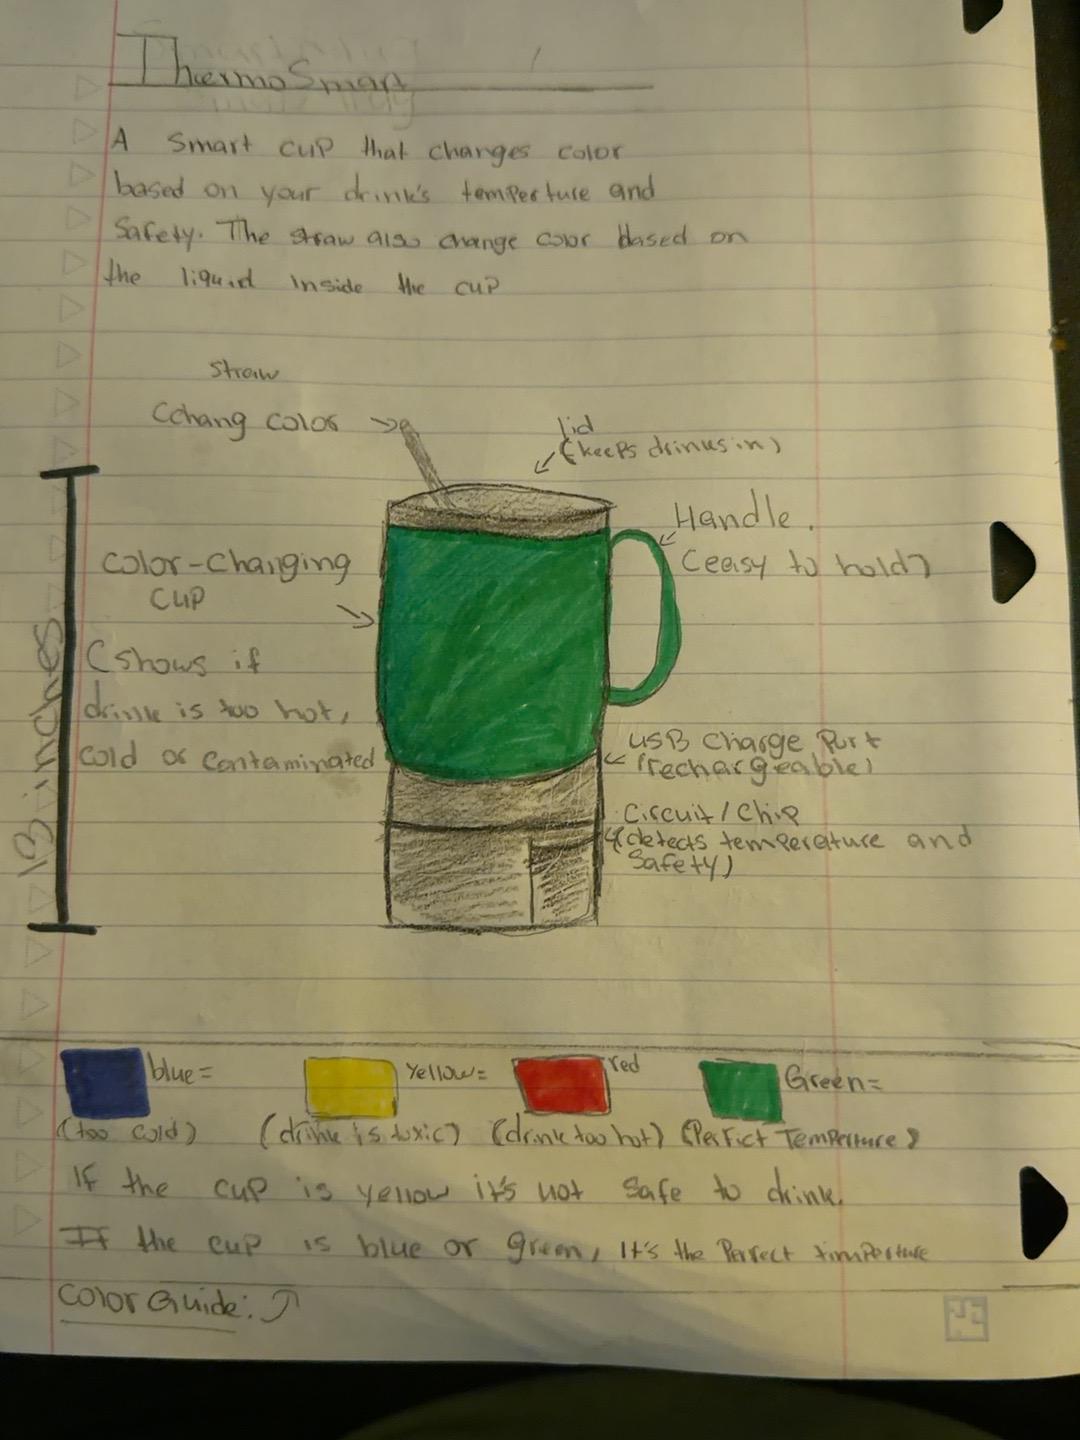 ThermoSmart
A smart cup that changes color
based on your drink's temperture and
Safety. The straw also change color based on
the liquid inside the cup
straw
(chang color
lid
(keeps drinks in)
Handle.
(easy to hold)
color-changing
cup
(shows if
drink is too hot,
cold or contaminated
13 inches
USB charge Port
(rechargeable)
Circuit/Chip
(detects temperature and
Safety)
blue=
(too cold)
Yellow=
(drink is toxic)
red
(drink too hot)
Green=
(Perfict Temperture)
If the cup is yellow it's not safe to drink.
If the cup is blue or green, It's the Perfect timperture
Color Guide: